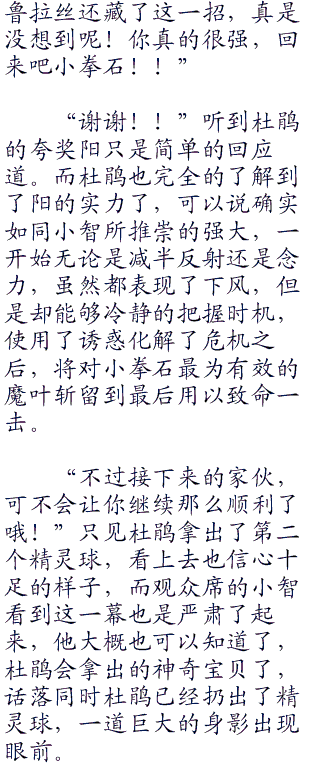 鲁拉丝还藏了这一招，真是
没想到呢！你真的很强，回
来吧小拳石！！”
“谢谢！！”听到杜鹃
的夸奖阳只是简单的回应
道。而杜鹃也完全的了解到
了阳的实力了，可以说确实
如同小智所推崇的强大，一
开始无论是减半反射还是念
力，虽然都表现了下风，但
是却能够冷静的把握时机，
使用了诱惑化解了危机之
后，将对小拳石最为有效的
魔叶斩留到最后用以致命一
击。
“不过接下来的家伙，
可不会让你继续那么顺利了
哦！”只见杜鹃拿出了第二
个精灵球，看上去也信心十
足的样子，而观众席的小智
看到这一幕也是严肃了起
来，他大概也可以知道了，
杜鹃会拿出的神奇宝贝了，
话落同时杜鹃已经扔出了精
灵球，一道巨大的身影出现
眼前。